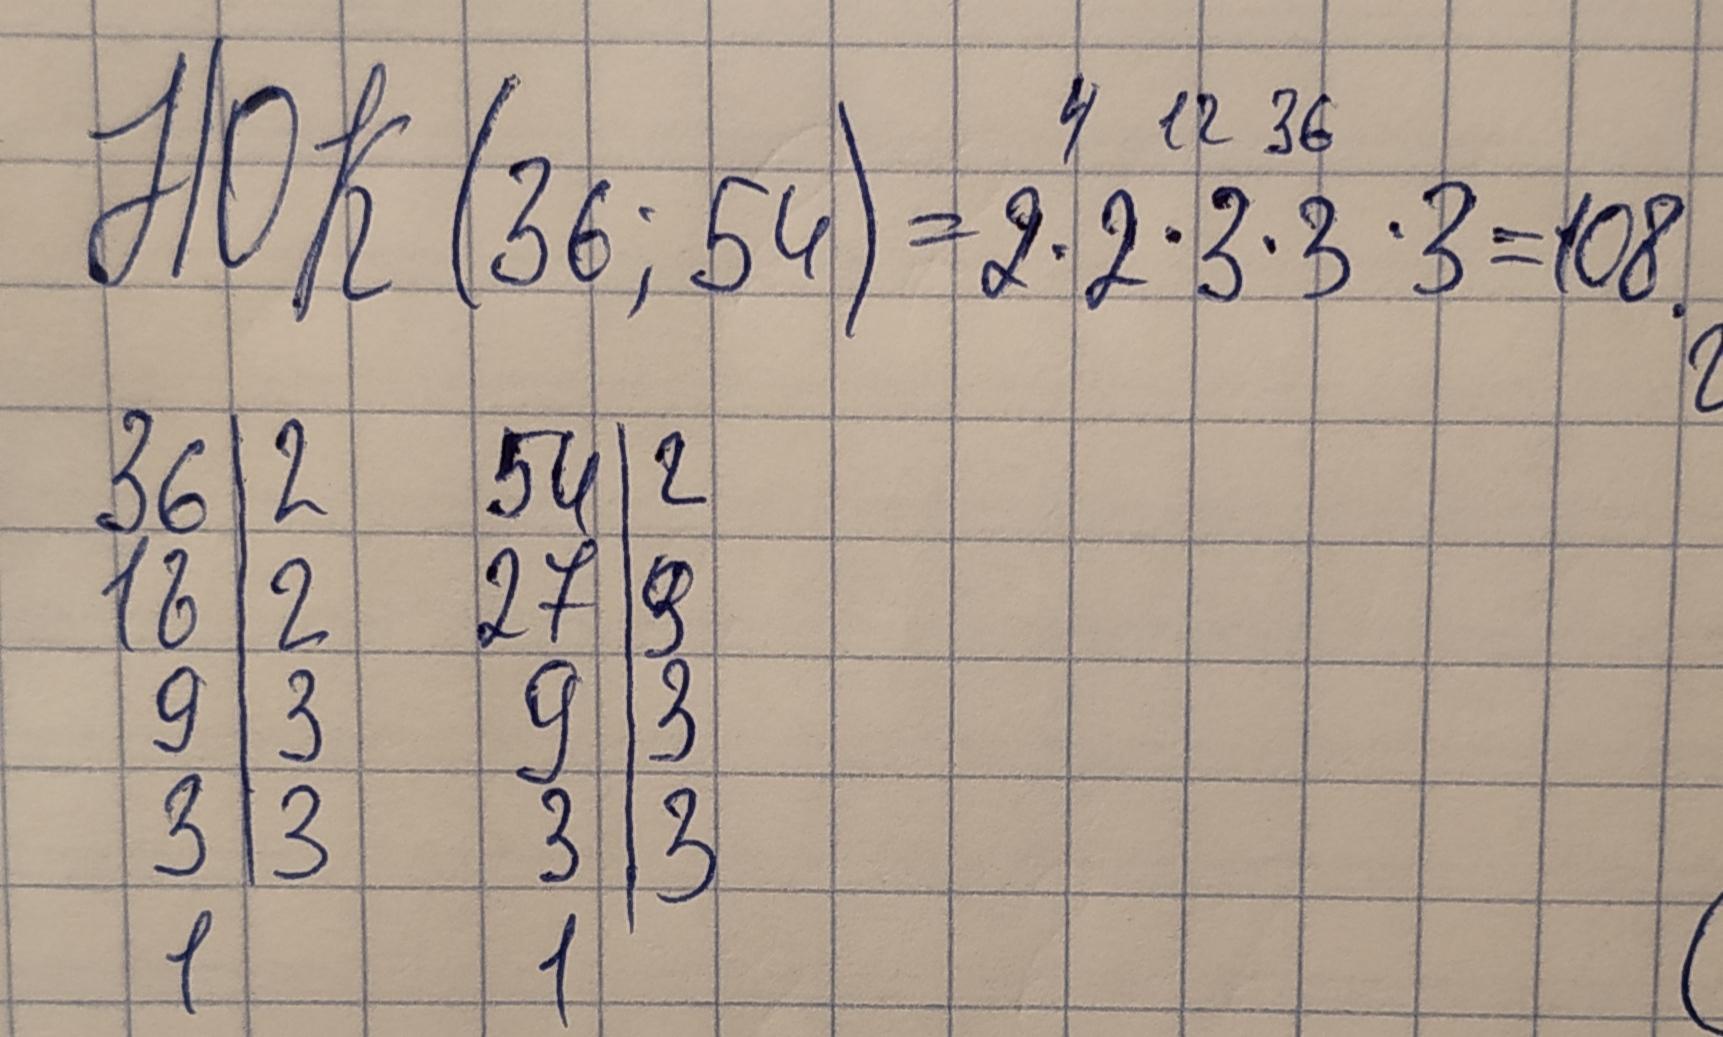 4 12 36
НОК (36; 54) = 2 · 2 · 3 · 3 · 3 = 108.
36 | 2 54 | 2
18 | 2 27 | 3
9 | 3 9 | 3
3 | 3 3 | 3
1 1